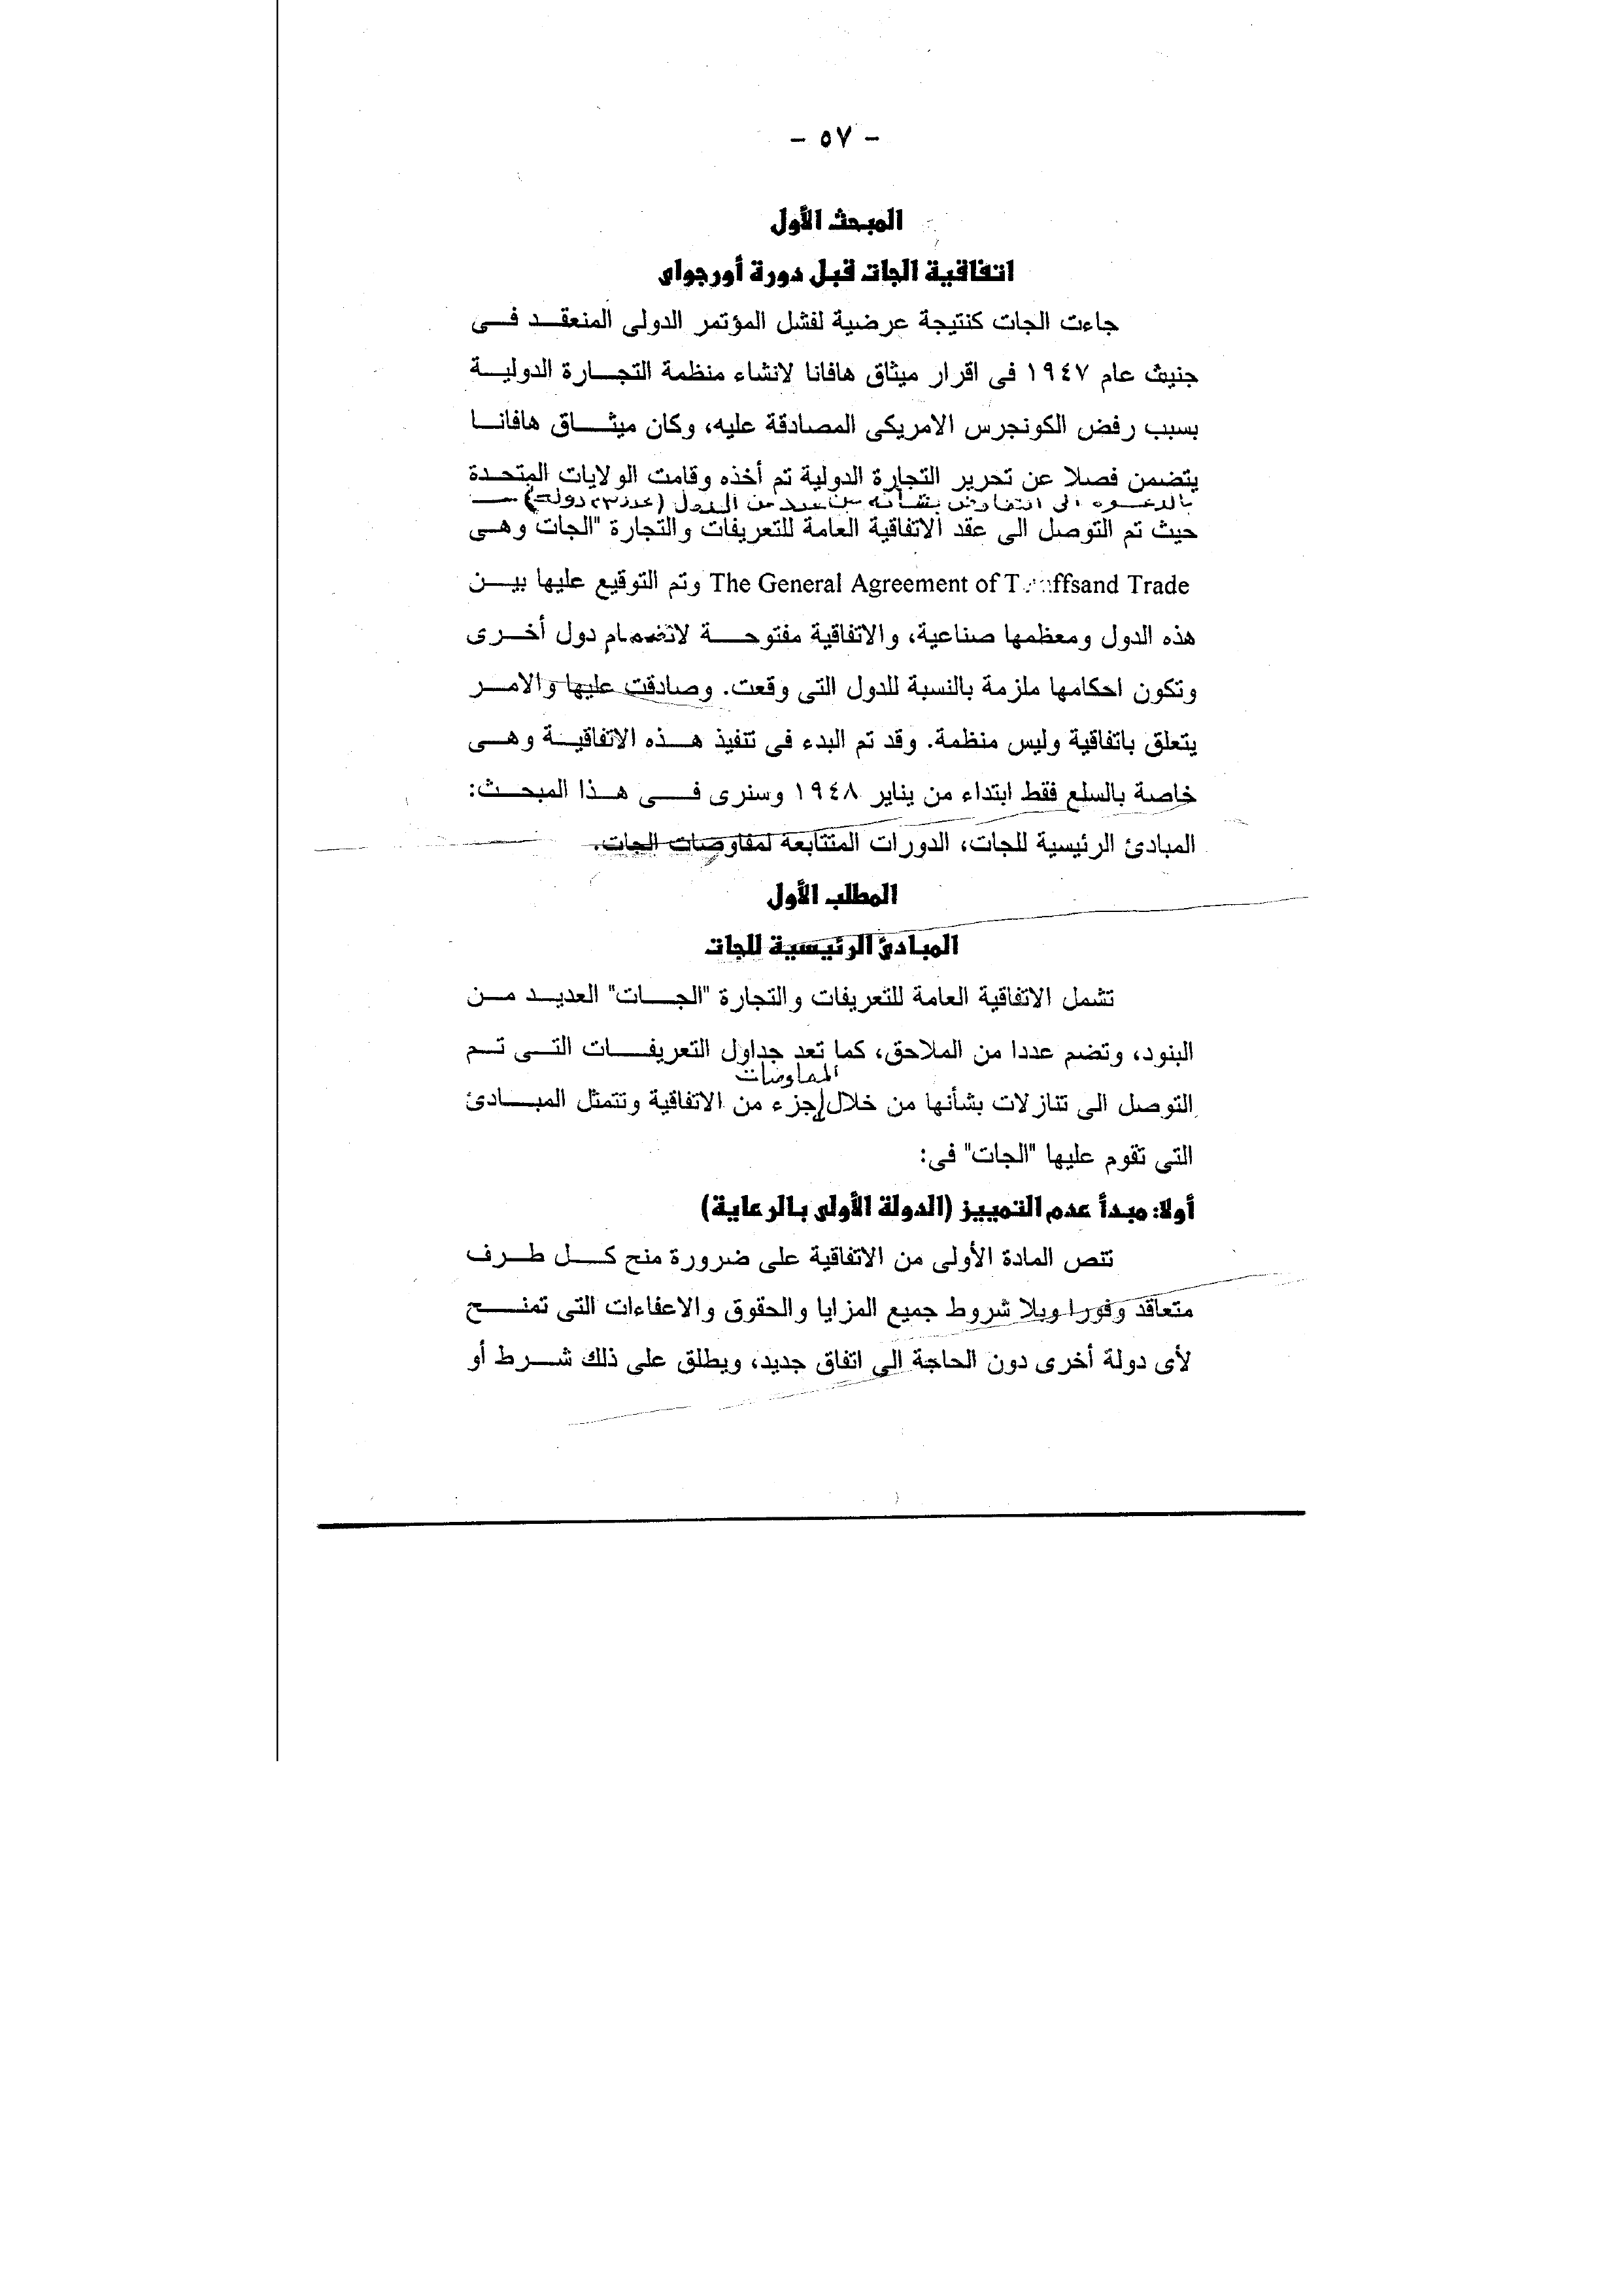 - ٥٧ -
المبحث الأول
اتفاقية الجات قبل دورة أورجواى
جاءت الجات كنتيجة عرضية لفشل المؤتمر الدولى المنعقد فى
جنيف عام ١٩٤٧ فى اقرار ميثاق هافانا لانشاء منظمة التجارة الدولية
بسبب رفض الكونجرس الامريكى المصادقة عليه، وكان ميثاق هافانا
يتضمن فصلا عن تحرير التجارة الدولية تم أخذه وقامت الولايات المتحدة
بالدعوه الى التفاوض بشأنه بين عدد من الدول (عدد ٢٣ دولة)
حيث تم التوصل الى عقد الاتفاقية العامة للتعريفات والتجارة "الجات وهى
The General Agreement of Trade وتم التوقيع عليها بين
هذه الدول ومعظمها صناعية، والاتفاقية مفتوحة لانضمام دول أخرى
وتكون احكامها ملزمة بالنسبة للدول التى وقعت. وصادقت عليها والامر
يتعلق باتفاقية وليس منظمة. وقد تم البدء فى تنفيذ هذه الاتفاقية وهى
خاصة بالسلع فقط ابتداء من يناير ١٩٤٨ وسنرى فى هذا المبحث:
المبادئ الرئيسية للجات، الدورات المتتابعة لمفاوضات الجات.
المطلب الأول
المبادئ الرئيسية للجات
تشمل الاتفاقية العامة للتعريفات والتجارة "الجات" العديد من
البنود، وتضم عددا من الملاحق، كما تعد جداول التعريفات التى تم
المفاوضات
التوصل الى تنازلات بشأنها من خلال جزء من الاتفاقية وتتمثل المبادئ
التى تقوم عليها "الجات" فى:
أولا: مبدأ عدم التمييز (الدولة الأولى بالرعاية)
تنص المادة الأولى من الاتفاقية على ضرورة منح كل طرف
متعاقد وفورا وبلا شروط جميع المزايا والحقوق والاعفاءات التى تمنح
لأى دولة أخرى دون الحاجة الى اتفاق جديد، ويطلق على ذلك شرط أو